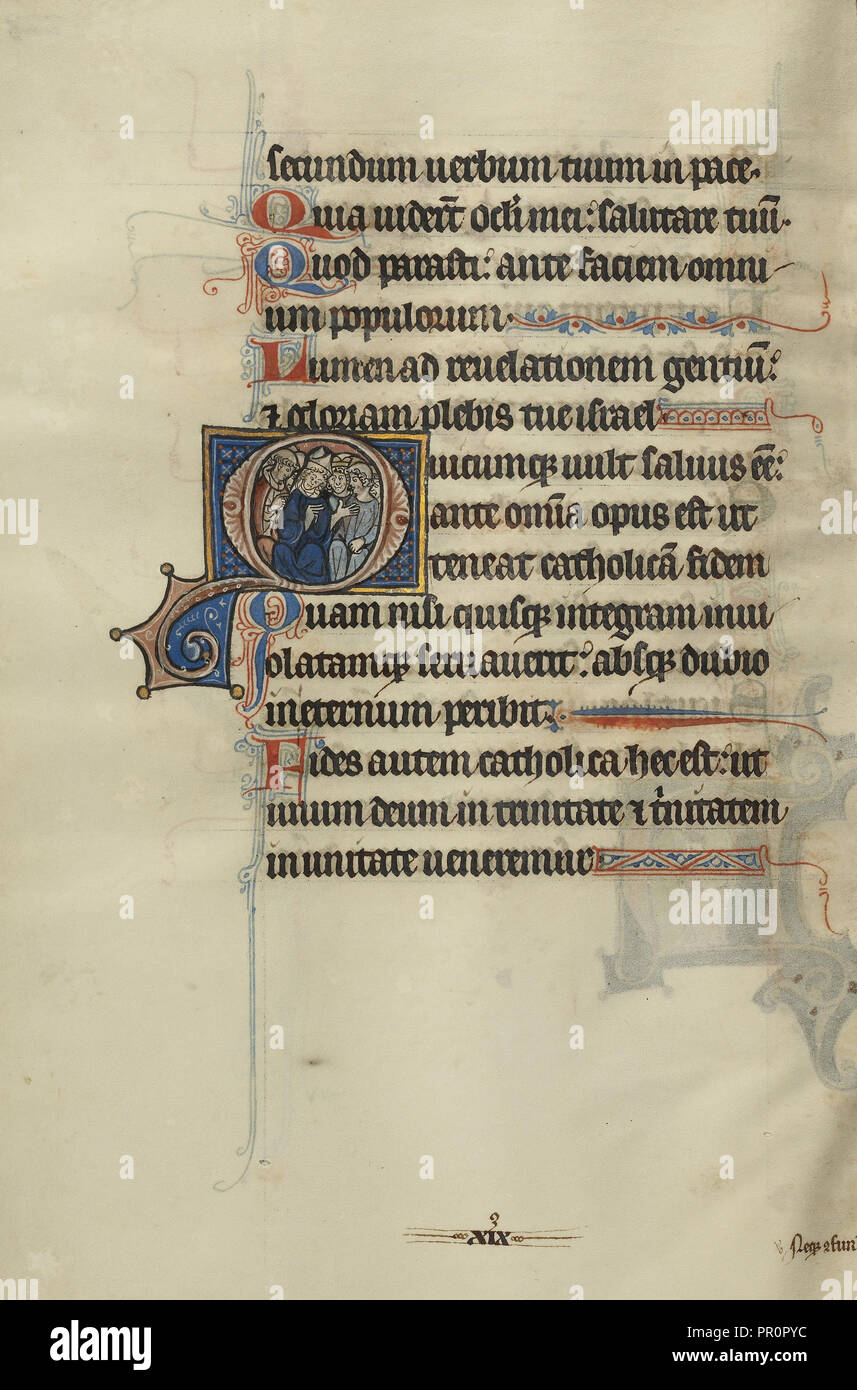 secundum uerbum tuum in pace.
Quia uiderūt oclī mei: salutare tuū.
Quod parasti: ante faciem omni
um populorum.
Lumen ad reuelationem gentiū:
⁊ gloriam plebis tue israel
Quicumqꝫ uult saluus eē:
ante omīa opus est ut
teneat catholicā fidem
Quam nisi quisqꝫ integram inui
olatamqꝫ seruauerit: absqꝫ dubio
ineternum peribit.
Fides autem catholica hec est: ut
unum deum in trinitate ⁊ tīnitatem
in unitate ueneremur
XIX
Neqꝫ
alamy
Image ID: PR0PYC
www.alamy.com